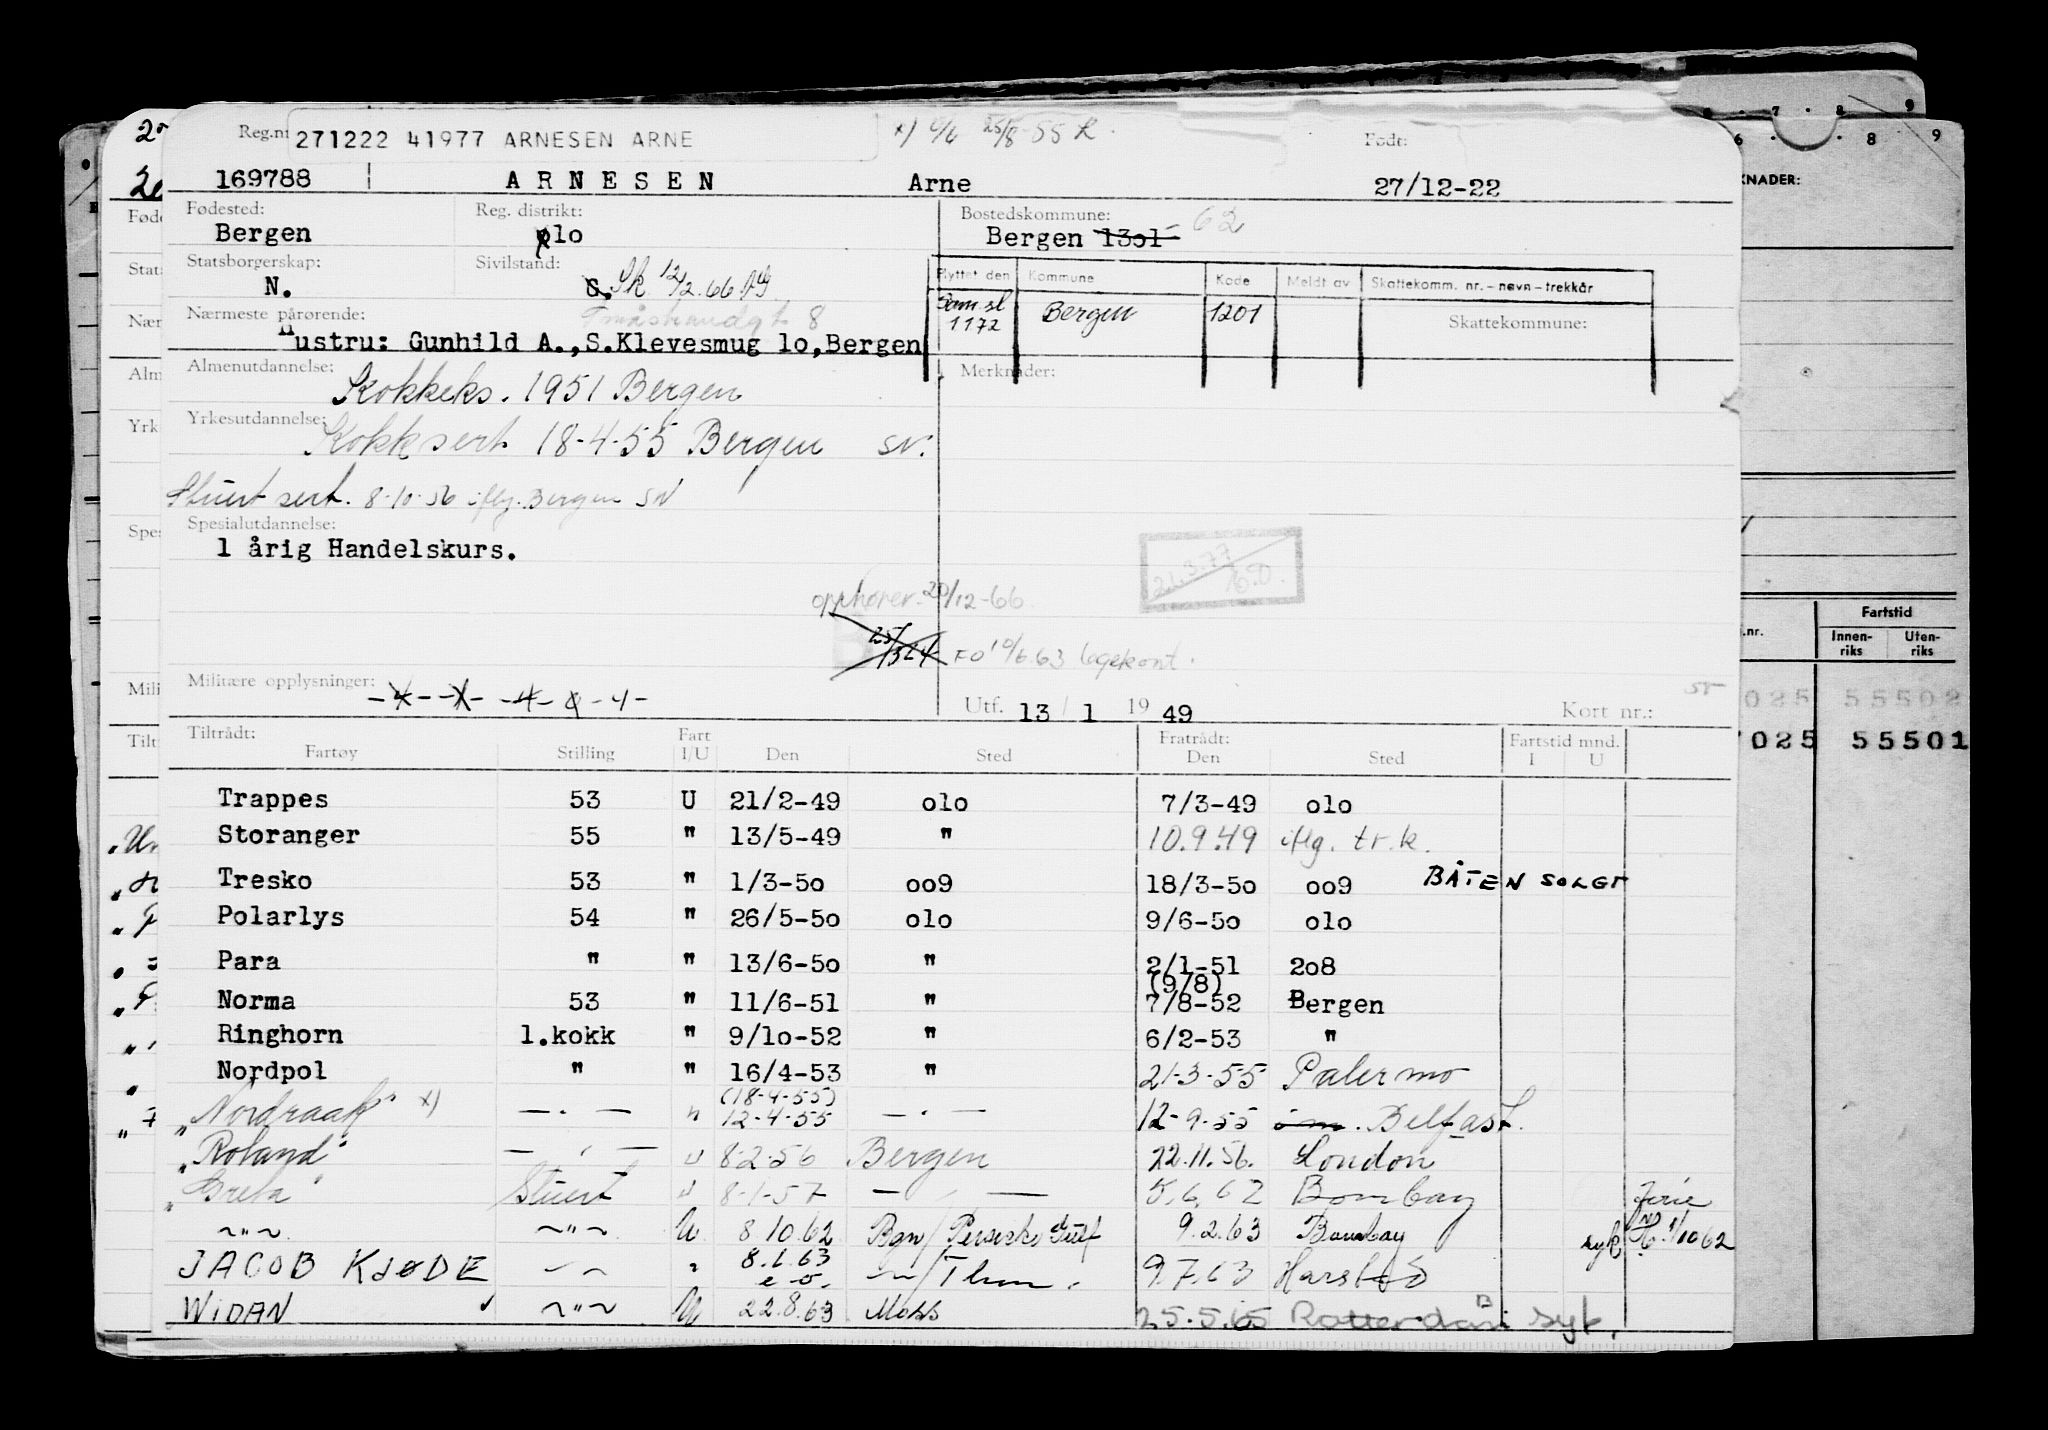 271222 41977 ARNESEN ARNE
x) 25/8-55 R.
Født:
169788 ARNESEN Arne 27/12-22
Fødested: Reg. distrikt: Bostedskommune:
Bergen olo Bergen 13ol 62
Statsborgerskap: Sivilstand:
N. Sk 12/2.66
Flyttet den Kommune Kode Meldt av Skattekomm. nr. - navn - trekkår
Sam sl 1172 Bergen 1201
Nærmeste pårørende: Skattekommune:
Hustru: Gunhild A.,S.Klevesmug lo,Bergen
Almenutdannelse: Merknader:
Kokkeks. 1951 Bergen
Yrkesutdannelse:
Kokksert 18-4-55 Bergen SN.
Stuert sert. 8-10-56 iflg. Bergen SN
Spesialutdannelse:
1 årig Handelskurs.
21.3.77
opphører 20/12-66
FO 10/6.63 legekont.
Militære opplysninger:
Utf. 13 / 1 19 49 Kort nr.:
Tiltrådt: Fratrådt: Fartstid mnd.
Fartøy Stilling Fart I/U Den Sted Den Sted I U
Trappes 53 U 21/2-49 olo 7/3-49 olo
Storanger 55 " 13/5-49 " 10.9.49 iflg. tr.k.
Tresko 53 " 1/3-5o oo9 18/3-5o oo9 BÅTEN SOLGT
Polarlys 54 " 26/5-5o olo 9/6-5o olo
Para " " 13/6-5o " 2/1-51 2o8
(9/8)
Norma 53 " 11/6-51 " 7/8-52 Bergen
Ringhorn 1.kokk " 9/1o-52 " 6/2-53 "
Nordpol " " 16/4-53 " 21-3-55 Palermo
(18-4-55)
"Nordraak" x) — . — " 12-4-55 — . — 12-9-55 Belfast.
"Roland" — . — " 8-2-56 Bergen 22.11.56. London
"Greta" Stuert " 8-1-57 — . — 5.6.62 Bombay Ferie
~"~ ~"~ U 8.10.62 Ban/Persiske Gulf 9.2.63 Bombay syk 1/10 62
JACOB KJØDE " 8.6.63 9.7.63 Harstad
WIDAN ~"~ U 22.8.63 Moss 25.5.65 Rotterdam syk.
KNADER:
Fartstid
Innen-riks Uten-riks
025 55502
7025 55501